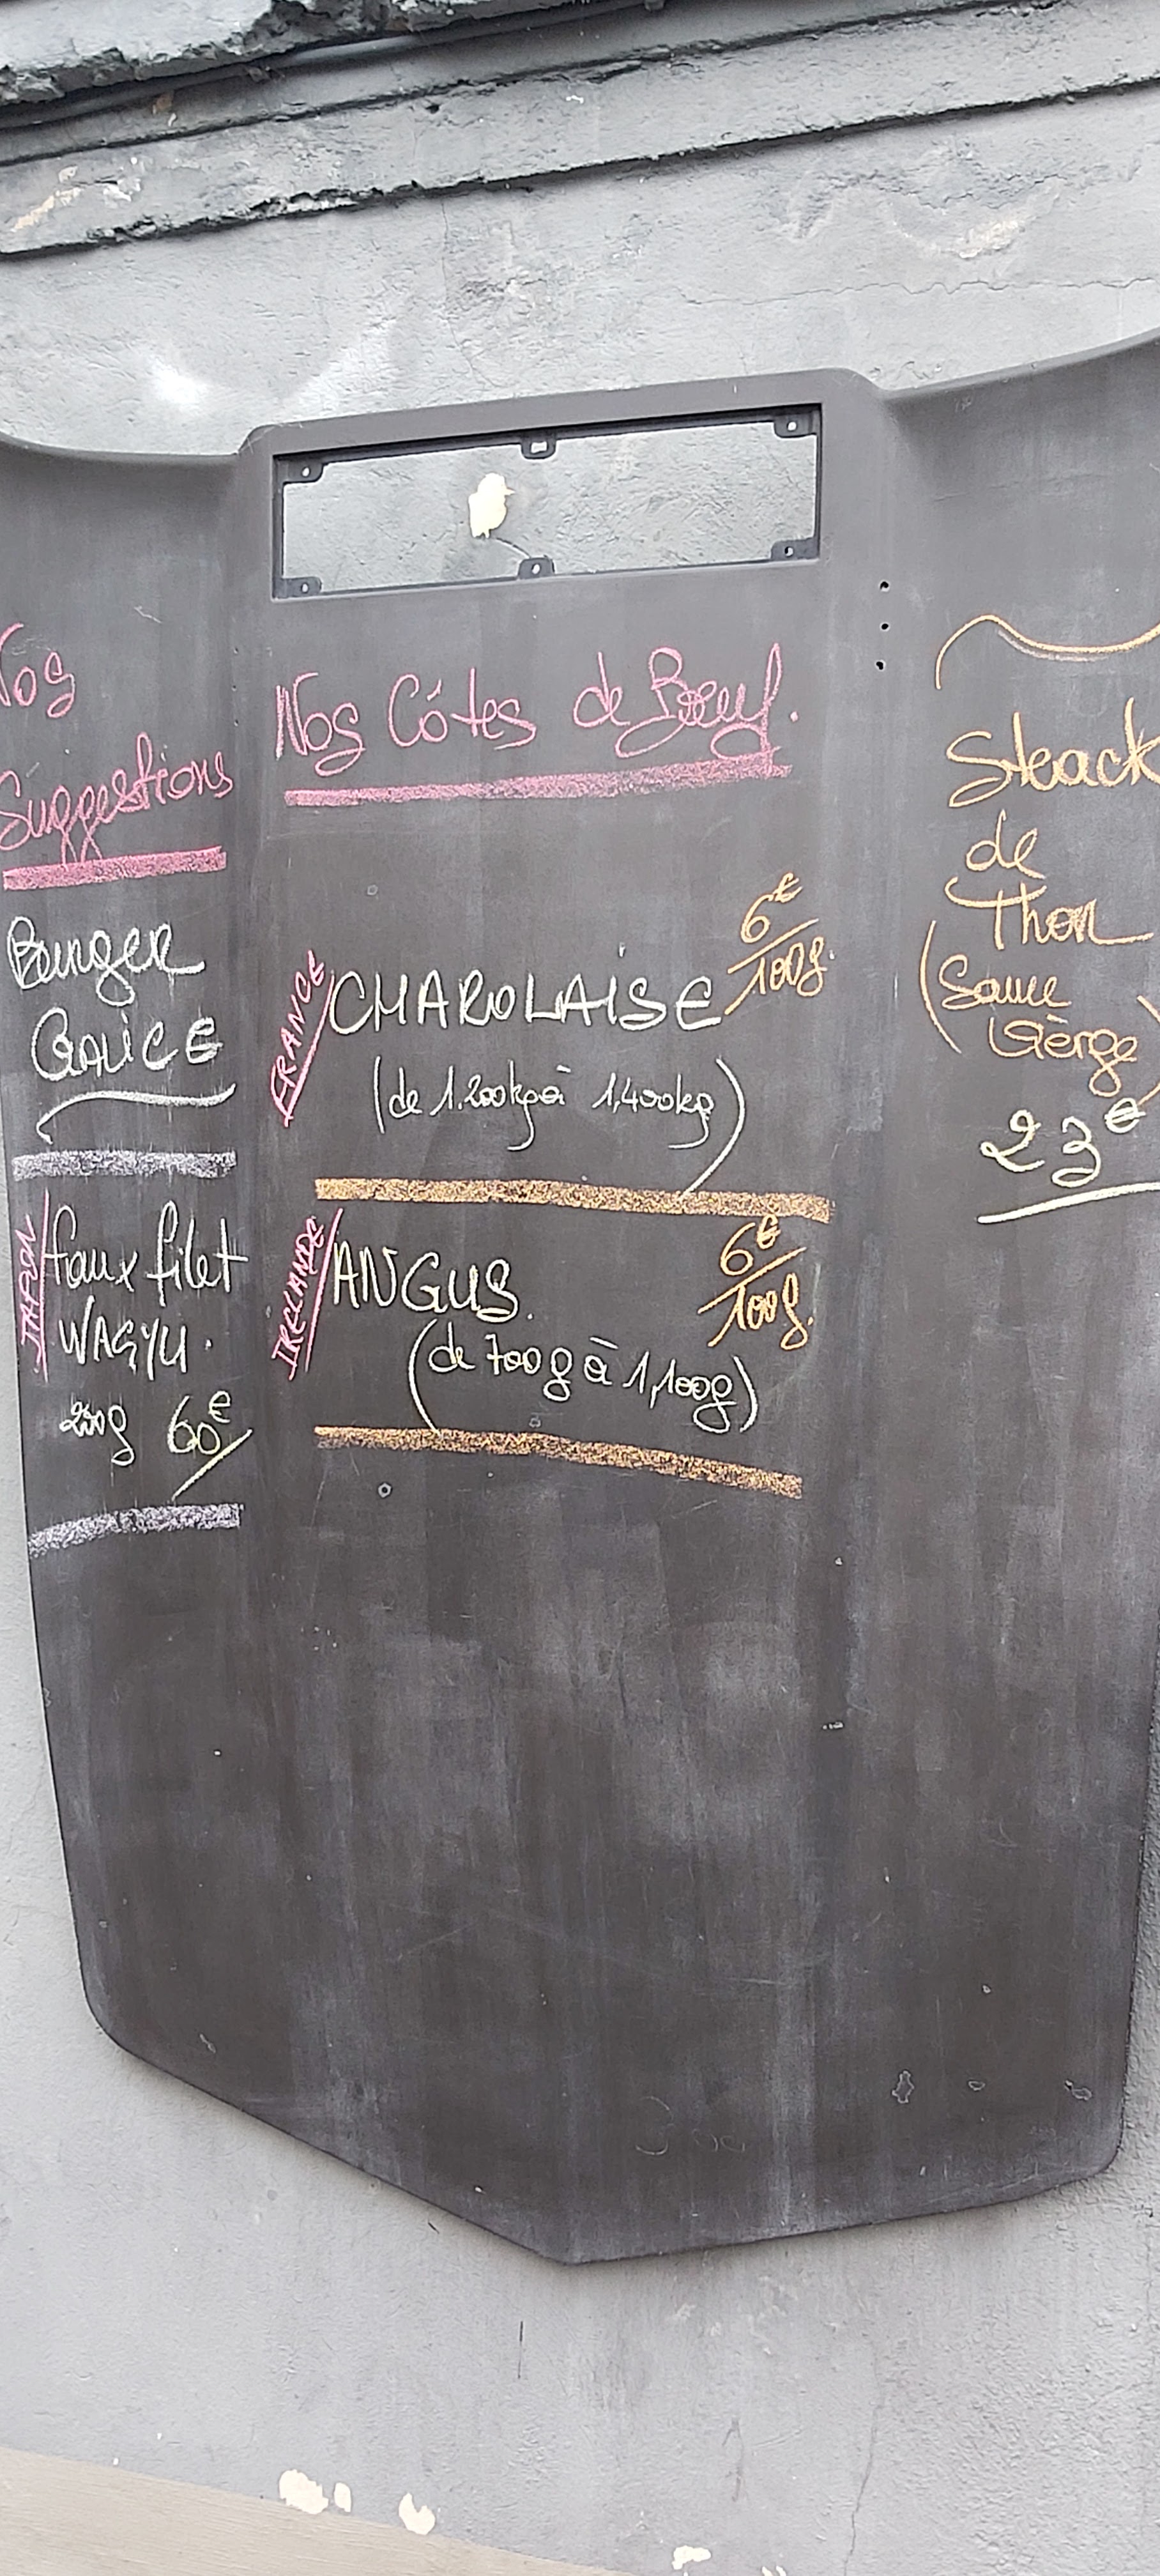 Nos
Suggestions
Burger
GALICE
JAPON
faux filet
WAGYU.
200g 60€
Nos Côtes de Bœuf.
FRANCE
CHAROLAISE
6€/100g.
(de 1.200kg à 1,400kg)
IRELANDE
ANGUS.
6€/100g.
(de 700g à 1,100g)
Steack
de
Thon
(Sauce
23€